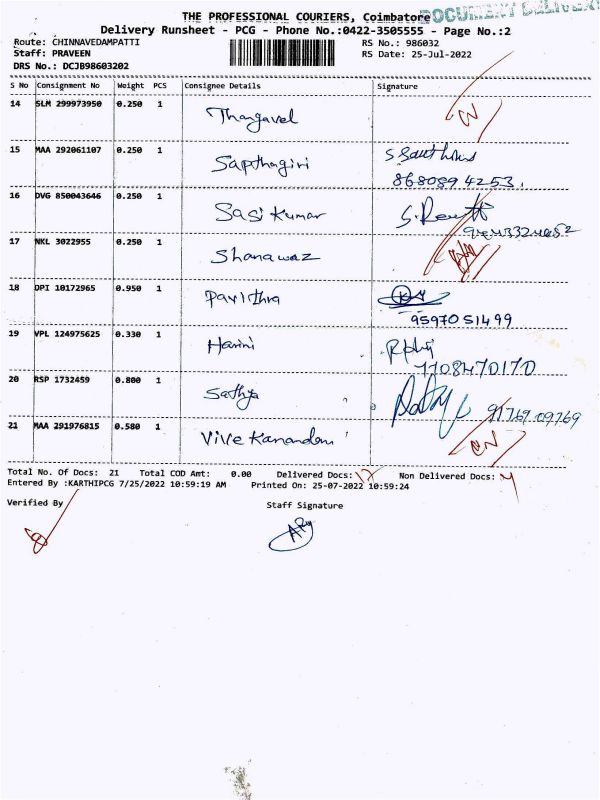 THE PROFESSIONAL COURIERS, Coimbatore
DOCUMENT DELIVER
Delivery Runsheet - PCG - Phone No.:0422-3505555 - Page No.:2
Route: CHINNAVEDAMPATTI RS No.: 986032
Staff: PRAVEEN RS Date: 25-Jul-2022
DRS No.: DCJB98603202
S No Consignment No Weight PCS Consignee Details Signature
14 SLM 299973950 0.250 1 Thangavel
15 MAA 292061107 0.250 1 Sapthagiri
868089 4253.
16 DVG 850043646 0.250 1 Sasi Kumar
17 NKL 3022955 0.250 1 Shanawaz
18 DPI 10172965 0.950 1 Pavithra
9597051499
19 VPL 124975625 0.330 1 Harini
7708470170
20 RSP 1732459 0.800 1 Sathya
91769 09769
21 MAA 291976815 0.580 1 Vivekanandan
Total No. Of Docs: 21 Total COD Amt: 0.00 Delivered Docs: 17 Non Delivered Docs: 4
Entered By :KARTHIPCG 7/25/2022 10:59:19 AM Printed On: 25-07-2022 10:59:24
Verified By Staff Signature